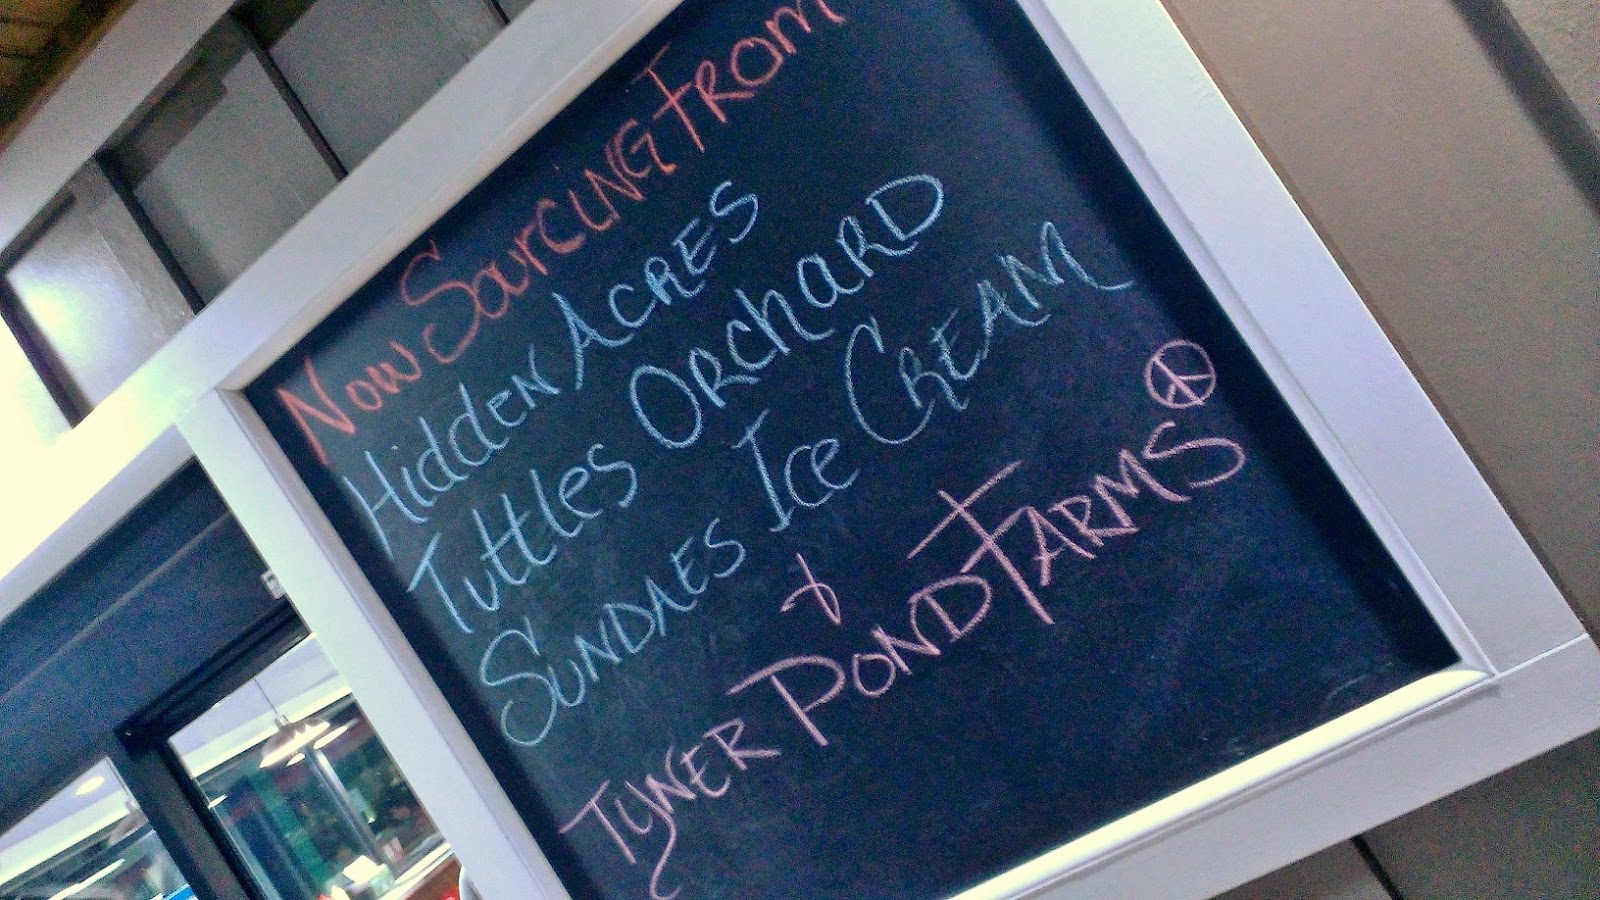 Now Sourcing From
Hidden Acres
Tuttles Orchard
Sundaes Ice Cream
&
Tyner Pond Farms